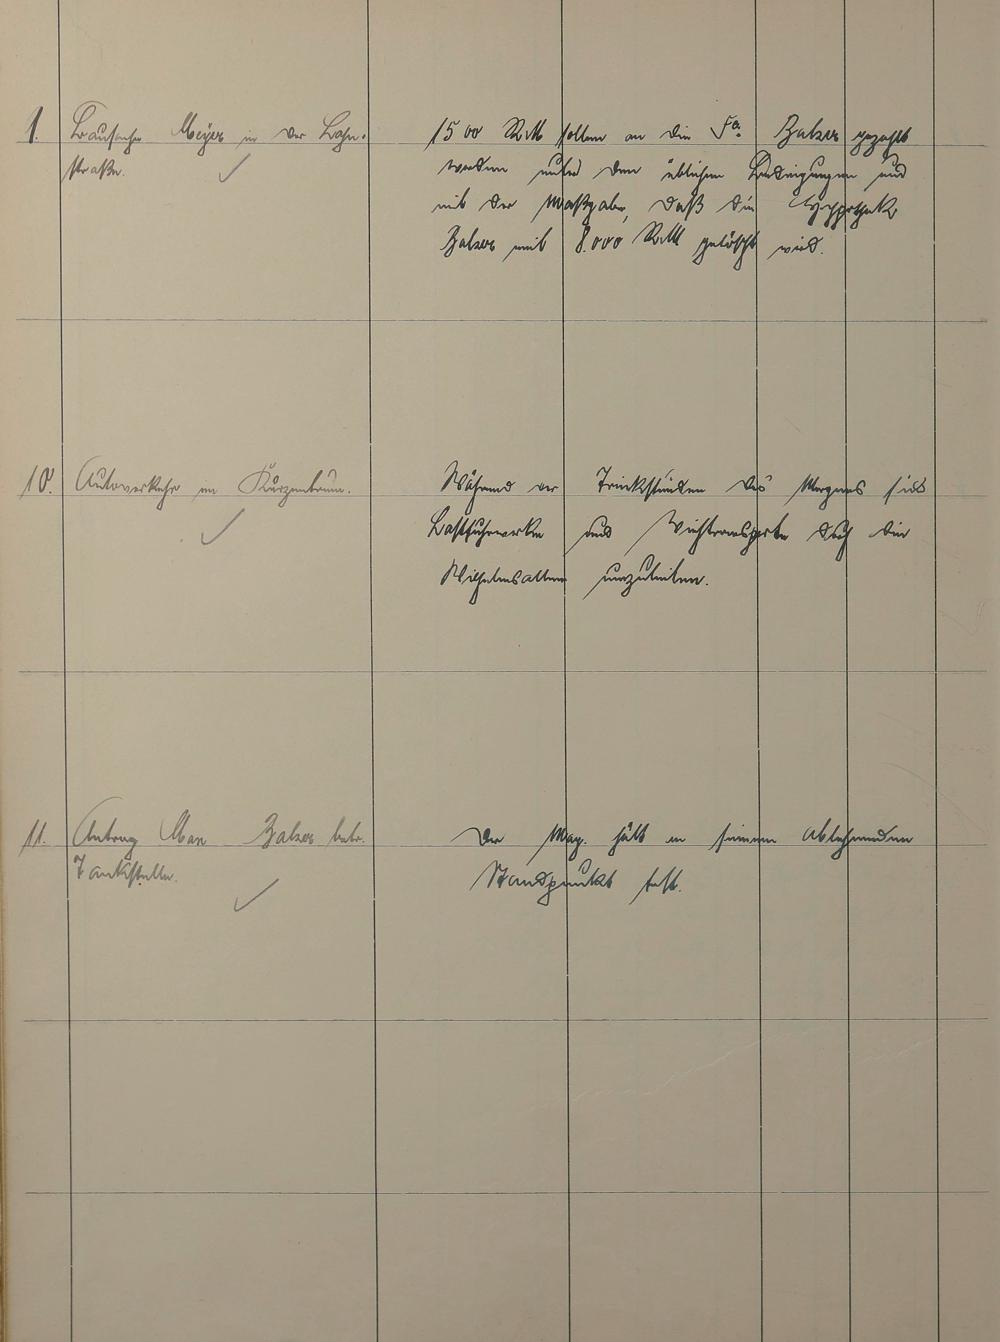 1. Bausache Meyer in der Lahn-
straße.
1500 RM sollen an die Fa. Balzer gezahlt
werden unter den üblichen Bedingungen und
mit der Maßgabe, daß die Hypothek
Balzer mit 8.000 RM gelöscht wird.
10. Autoverkehr im Kurzentrum.
Während der Trinkstunden des Morgens sind
Lastfuhrwerke und Viehtransporte durch die
Wilhelmsallee umzuleiten.
11. Antrag Max Balzer betr.
Tankstelle.
Der Mag. hält an seinem ablehnenden
Standpunkt fest.